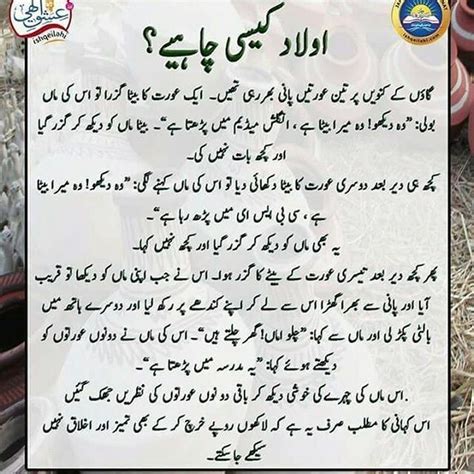 عشق الٰہی
ishqeilahi
ishqeilahi.com
اولاد کیسی چاہیے؟
گاؤں کے کنویں پر تین عورتیں پانی بھر رہی تھیں۔ ایک عورت کا بیٹا گزرا تو اس کی ماں
بولی: ”وہ دیکھو! وہ میرا بیٹا ہے، انگلش میڈیم میں پڑھتا ہے“۔ بیٹا ماں کو دیکھ کر گزر گیا
اور کچھ بات نہیں کی۔
کچھ ہی دیر بعد دوسری عورت کا بیٹا دکھائی دیا تو اس کی ماں کہنے لگی: ”وہ دیکھو! وہ میرا بیٹا
ہے، سی بی ایس ای میں پڑھ رہا ہے“۔
یہ بھی ماں کو دیکھ کر گزر گیا اور کچھ نہیں کہا۔
پھر کچھ دیر بعد تیسری عورت کے بیٹے کا گزر ہوا۔ اس نے جب اپنی ماں کو دیکھا تو قریب
آیا اور پانی سے بھرا گھڑا اس سے لے کر اپنے کندھے پر رکھ لیا اور دوسرے ہاتھ میں
بالٹی پکڑ لی اور ماں سے کہا: ”چلو اماں! گھر چلتے ہیں“۔ اس کی ماں نے دونوں عورتوں کو
دیکھتے ہوئے کہا: ”یہ مدرسہ میں پڑھتا ہے“۔
.اس ماں کی چہرے کی خوشی دیکھ کر باقی دونوں عورتوں کی نظریں جھک گئیں
اس کہانی کا مطلب صرف یہ ہے کہ لاکھوں روپے خرچ کر کے بھی تمیز اور اخلاق نہیں
سیکھے جاسکتے۔